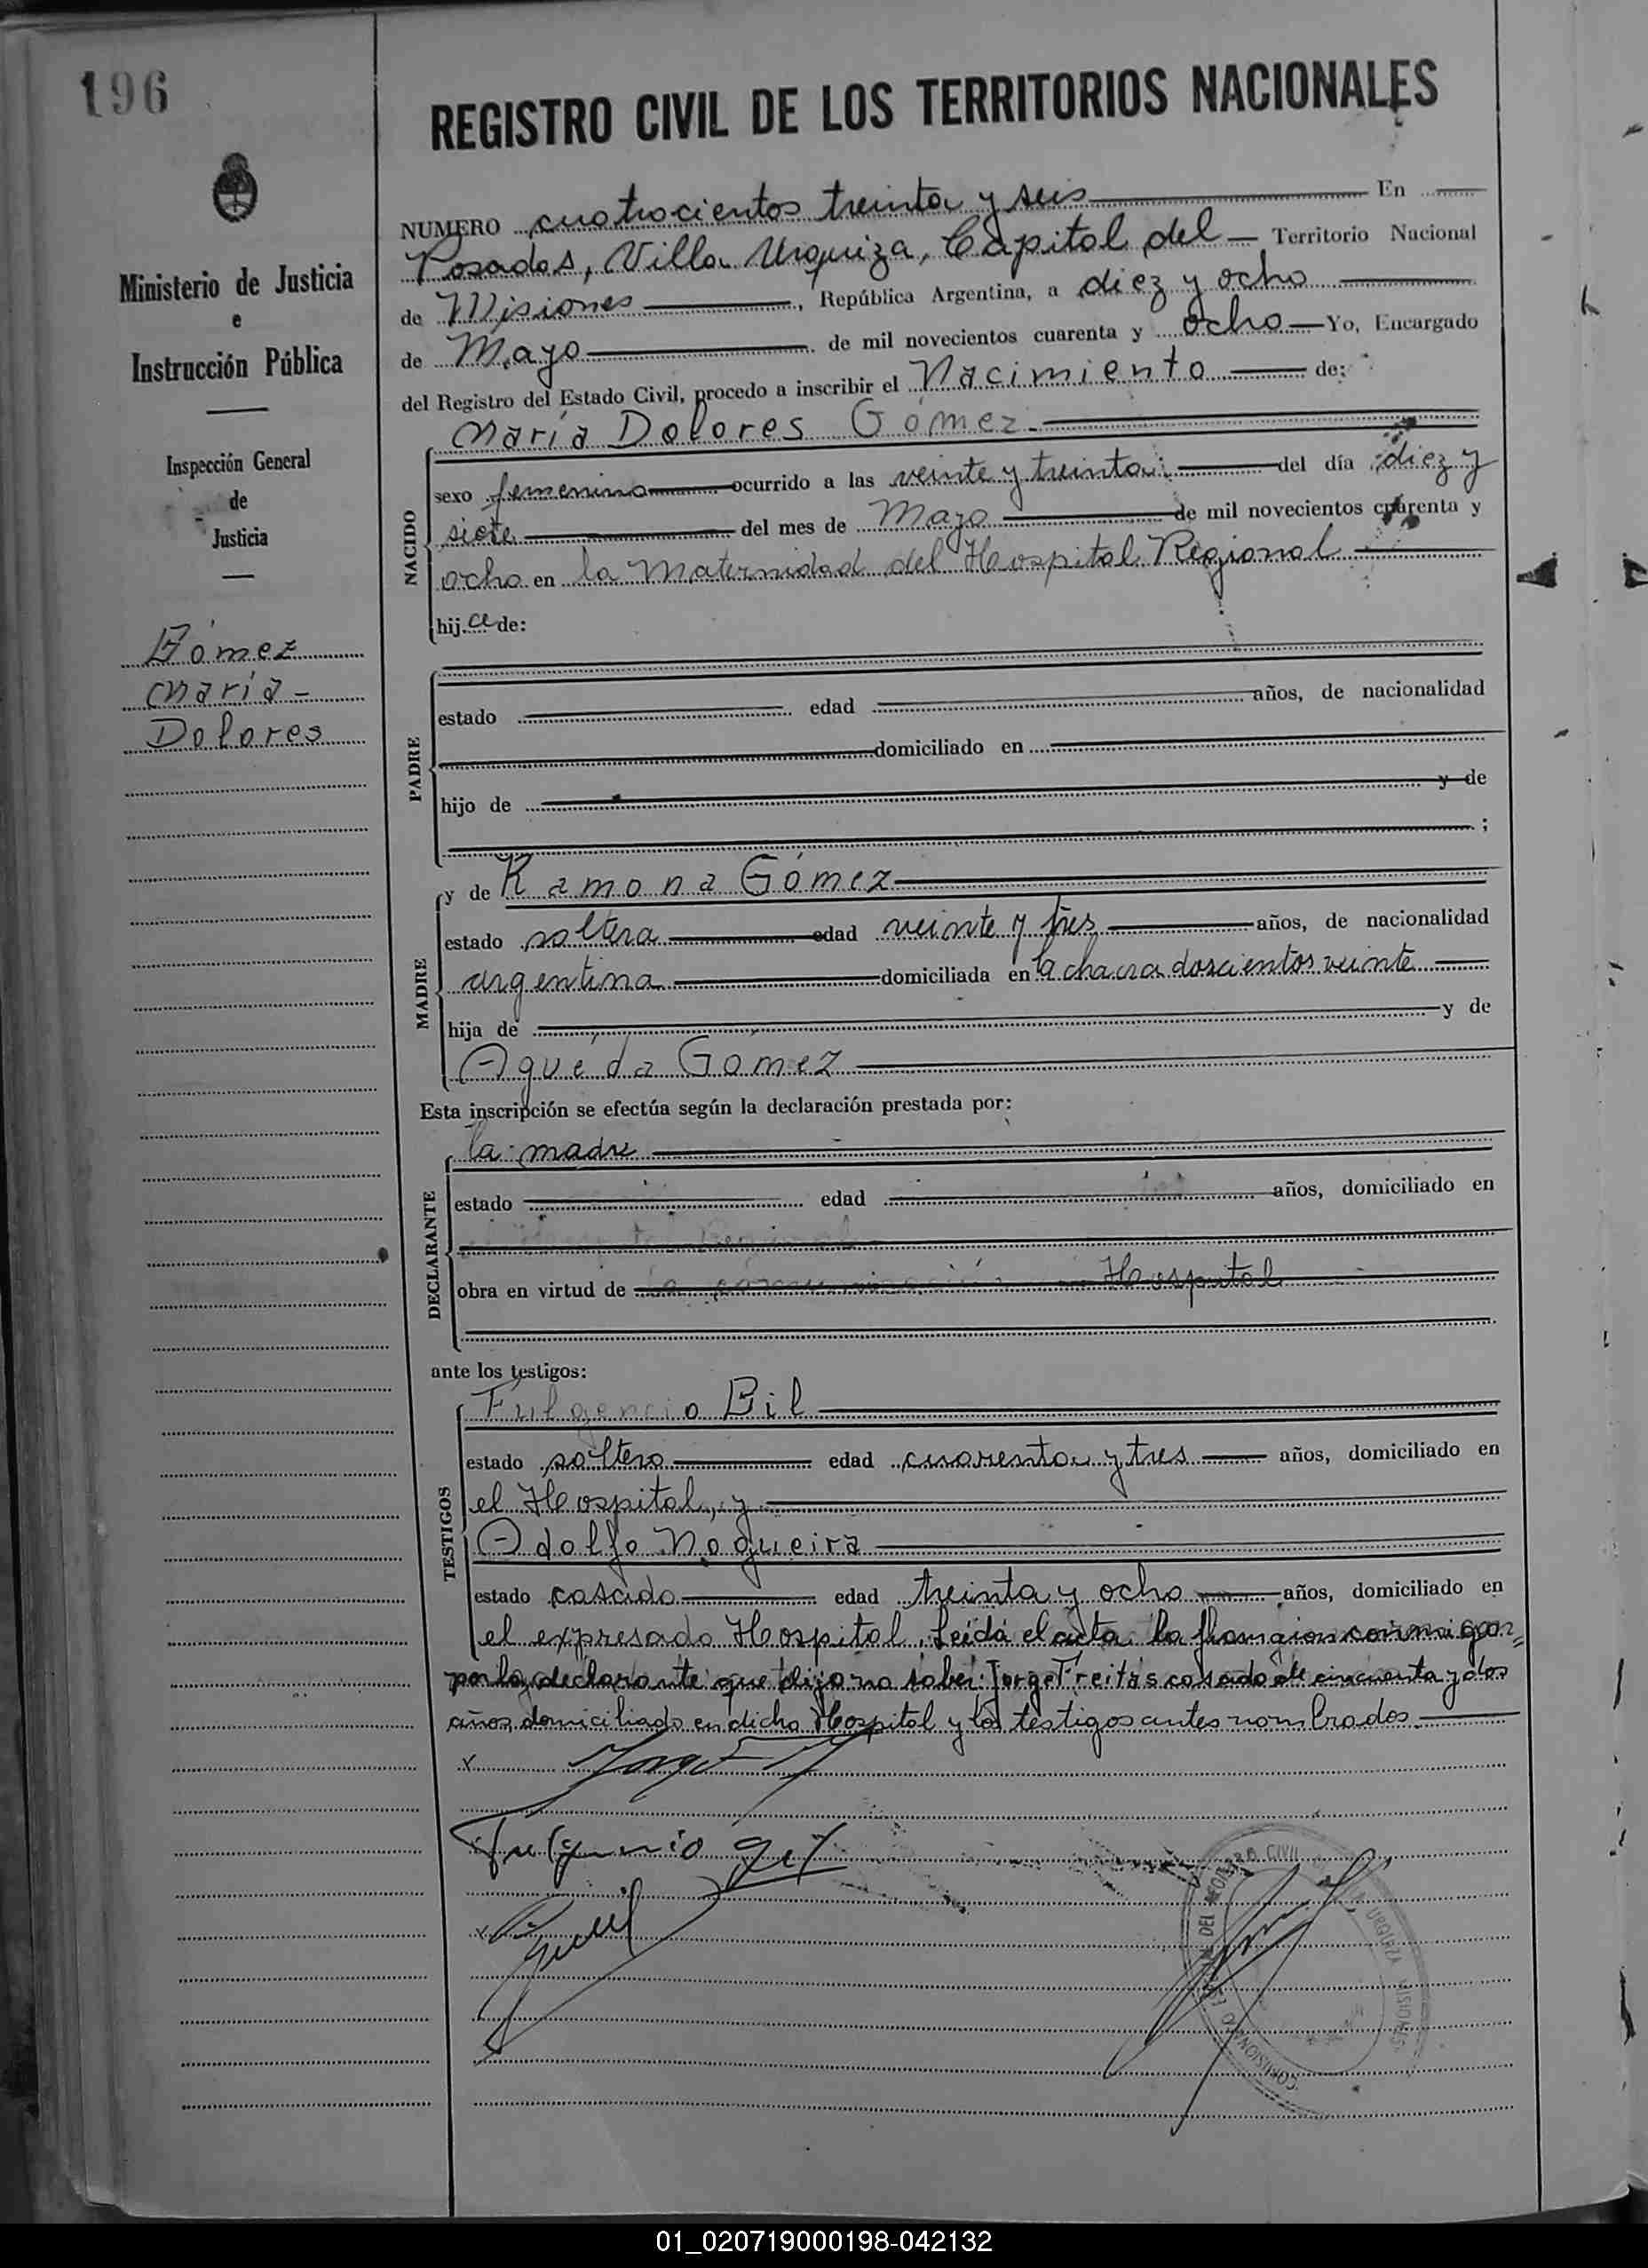 196
REGISTRO CIVIL DE LOS TERRITORIOS NACIONALES
Ministerio de Justicia
e
Instrucción Pública
Inspección General
de
Justicia
Gómez
María
Dolores
NUMERO cuatrocientos treinta y seis En
Posadas, Villa Urquiza, Capital del Territorio Nacional
de Misiones, República Argentina, a diez y ocho
de Mayo de mil novecientos cuarenta y ocho Yo, Encargado
del Registro del Estado Civil, procedo a inscribir el Nacimiento de:
María Dolores Gómez
NACIDO
sexo femenino ocurrido a las veinte y treinta del día diez y
siete del mes de Mayo de mil novecientos cuarenta y
ocho en la Maternidad del Hospital Regional
hija de:
PADRE
estado edad años, de nacionalidad
domiciliado en
hijo de y de
;
MADRE
y de Ramona Gómez
estado soltera edad veinte y tres años, de nacionalidad
argentina domiciliada en la chacra doscientos veinte
hija de y de
Agueda Gómez
Esta inscripción se efectúa según la declaración prestada por:
la madre
DECLARANTE
estado edad años, domiciliado en
obra en virtud de Hospital
ante los testigos:
TESTIGOS
Fulgencio Gil
estado soltero edad cuarenta y tres años, domiciliado en
el Hospital, y
Adolfo Nogueira
estado casado edad treinta y ocho años, domiciliado en
el expresado Hospital. Leída el acta, la
por la declarante que dijo no saber Jorge Freitas casado de cincuenta y dos
años, domiciliado en dicho Hospital y los testigos antes nombrados.
Fulgencio Gil
REGISTRO CIVIL
URQUIZA MISIONES
01_020719000198-042132